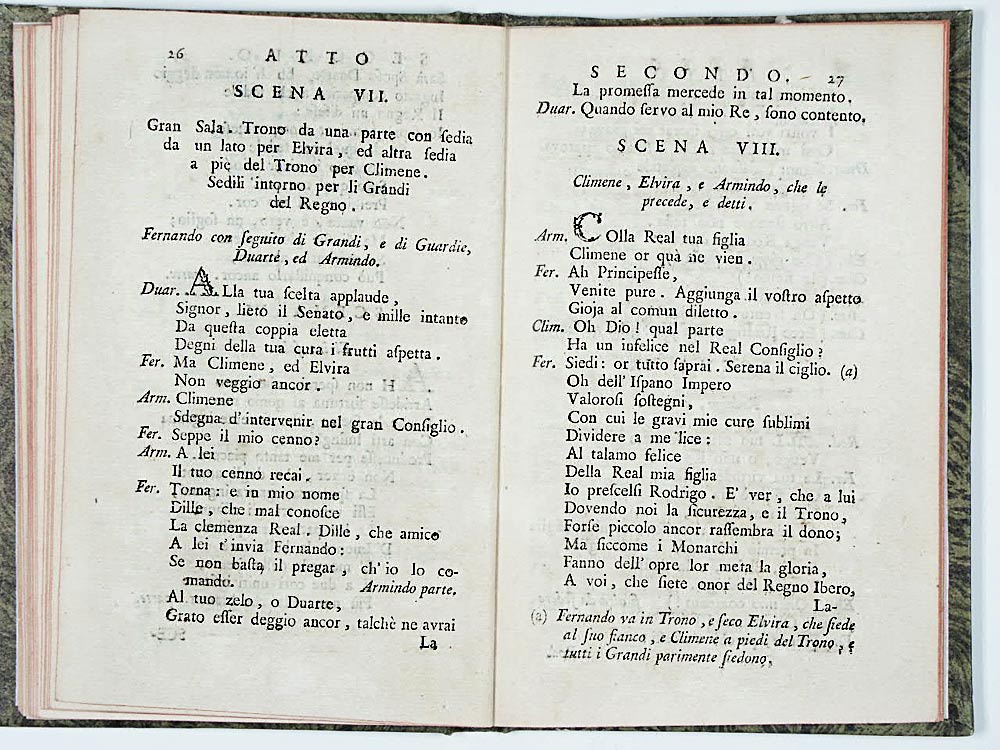 26 ATTO
SCENA VII.
Gran Sala. Trono da una parte con ſedia
da un lato per Elvira, ed altra ſedia
a piè del Trono per Climene.
Sedili intorno per li Grandi
del Regno.
Fernando con ſeguito di Grandi, e di Guardie,
Duarte, ed Armindo.
Duar. ALla tua ſcelta applaude,
Signor, lieto il Senato, e mille intanto
Da queſta coppia eletta
Degni della tua cura i frutti aſpetta.
Fer. Ma Climene, ed Elvira
Non veggio ancor.
Arm. Climene
Sdegna d'intervenir nel gran Conſiglio.
Fer. Seppe il mio cenno?
Arm. A lei
Il tuo cenno recai.
Fer. Torna: e in mio nome
Dille, che mal conoſce
La clemenza Real. Dille, che amico
A lei t'invia Fernando:
Se non baſta il pregar, ch'io lo co-
mando. Armindo parte.
Al tuo zelo, o Duarte,
Grato eſſer deggio ancor, talchè ne avrai
La
SECONDO. 27
La promeſſa mercede in tal momento.
Duar. Quando ſervo al mio Re, ſono contento.
SCENA VIII.
Climene, Elvira, e Armindo, che le
precede, e detti.
Arm. COlla Real tua figlia
Climene or quà ne vien.
Fer. Ah Principeſſe,
Venite pure. Aggiunga il voſtro aſpetto
Gioja al comun diletto.
Clim. Oh Dio! qual parte
Ha un infelice nel Real Conſiglio?
Fer. Siedi: or tutto ſaprai. Serena il ciglio. (a)
Oh dell'Iſpano Impero
Valoroſi ſoſtegni,
Con cui le gravi mie cure ſublimi
Dividere a me lice:
Al talamo felice
Della Real mia figlia
Io preſcelſi Rodrigo. E' ver, che a lui
Dovendo noi la ſicurezza, e il Trono,
Forſe piccolo ancor raſſembra il dono;
Ma ſiccome i Monarchi
Fanno dell'opre lor meta la gloria,
A voi, che ſiete onor del Regno Ibero,
La-
(a) Fernando va in Trono, e ſeco Elvira, che ſiede
al ſuo fianco, e Climene a piedi del Trono, e
tutti i Grandi parimente ſiedono.